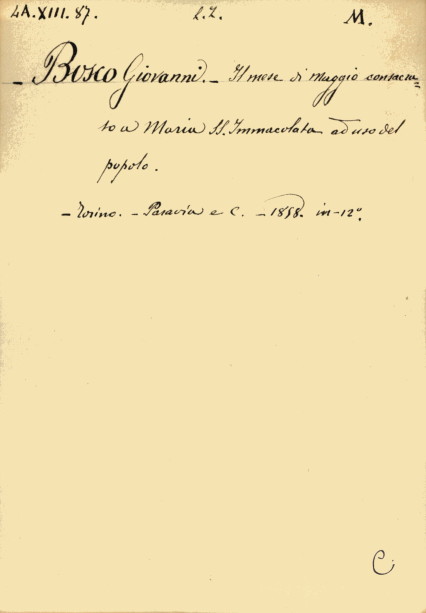 4A.XIII.87. L.L. M.
— Bosco Giovanni. — Il mese di Maggio consacra=
to a Maria SS. Immacolata ad uso del
popolo.
— Torino. — Paravia e C. — 1858. in-12°.
C